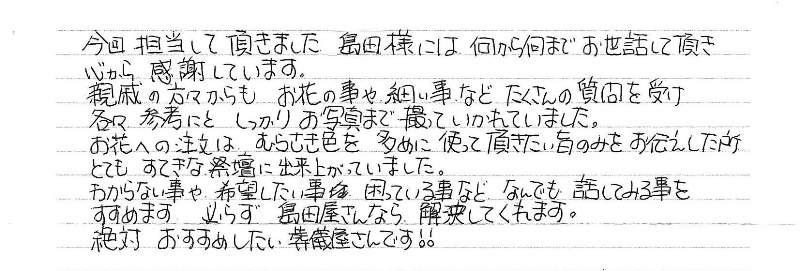 今回 担当して頂きました 島田様には 何から何まで お世話して頂き
心から 感謝しています。
親戚の方々からも お花の事や 細い事など たくさんの質問を受け
各々 参考にと しっかり お写真まで 撮っていかれていました。
お花への注文は むらさき色を 多めに 使って頂きたい旨のみをお伝えした所
とても すてきな祭壇に出来上がっていました。
わからない事や 希望したい事 困っている事など なんでも 話してみる事を
すすめます 必らず 島田屋さんなら 解決してくれます。
絶対 おすすめしたい 葬儀屋さんです!!